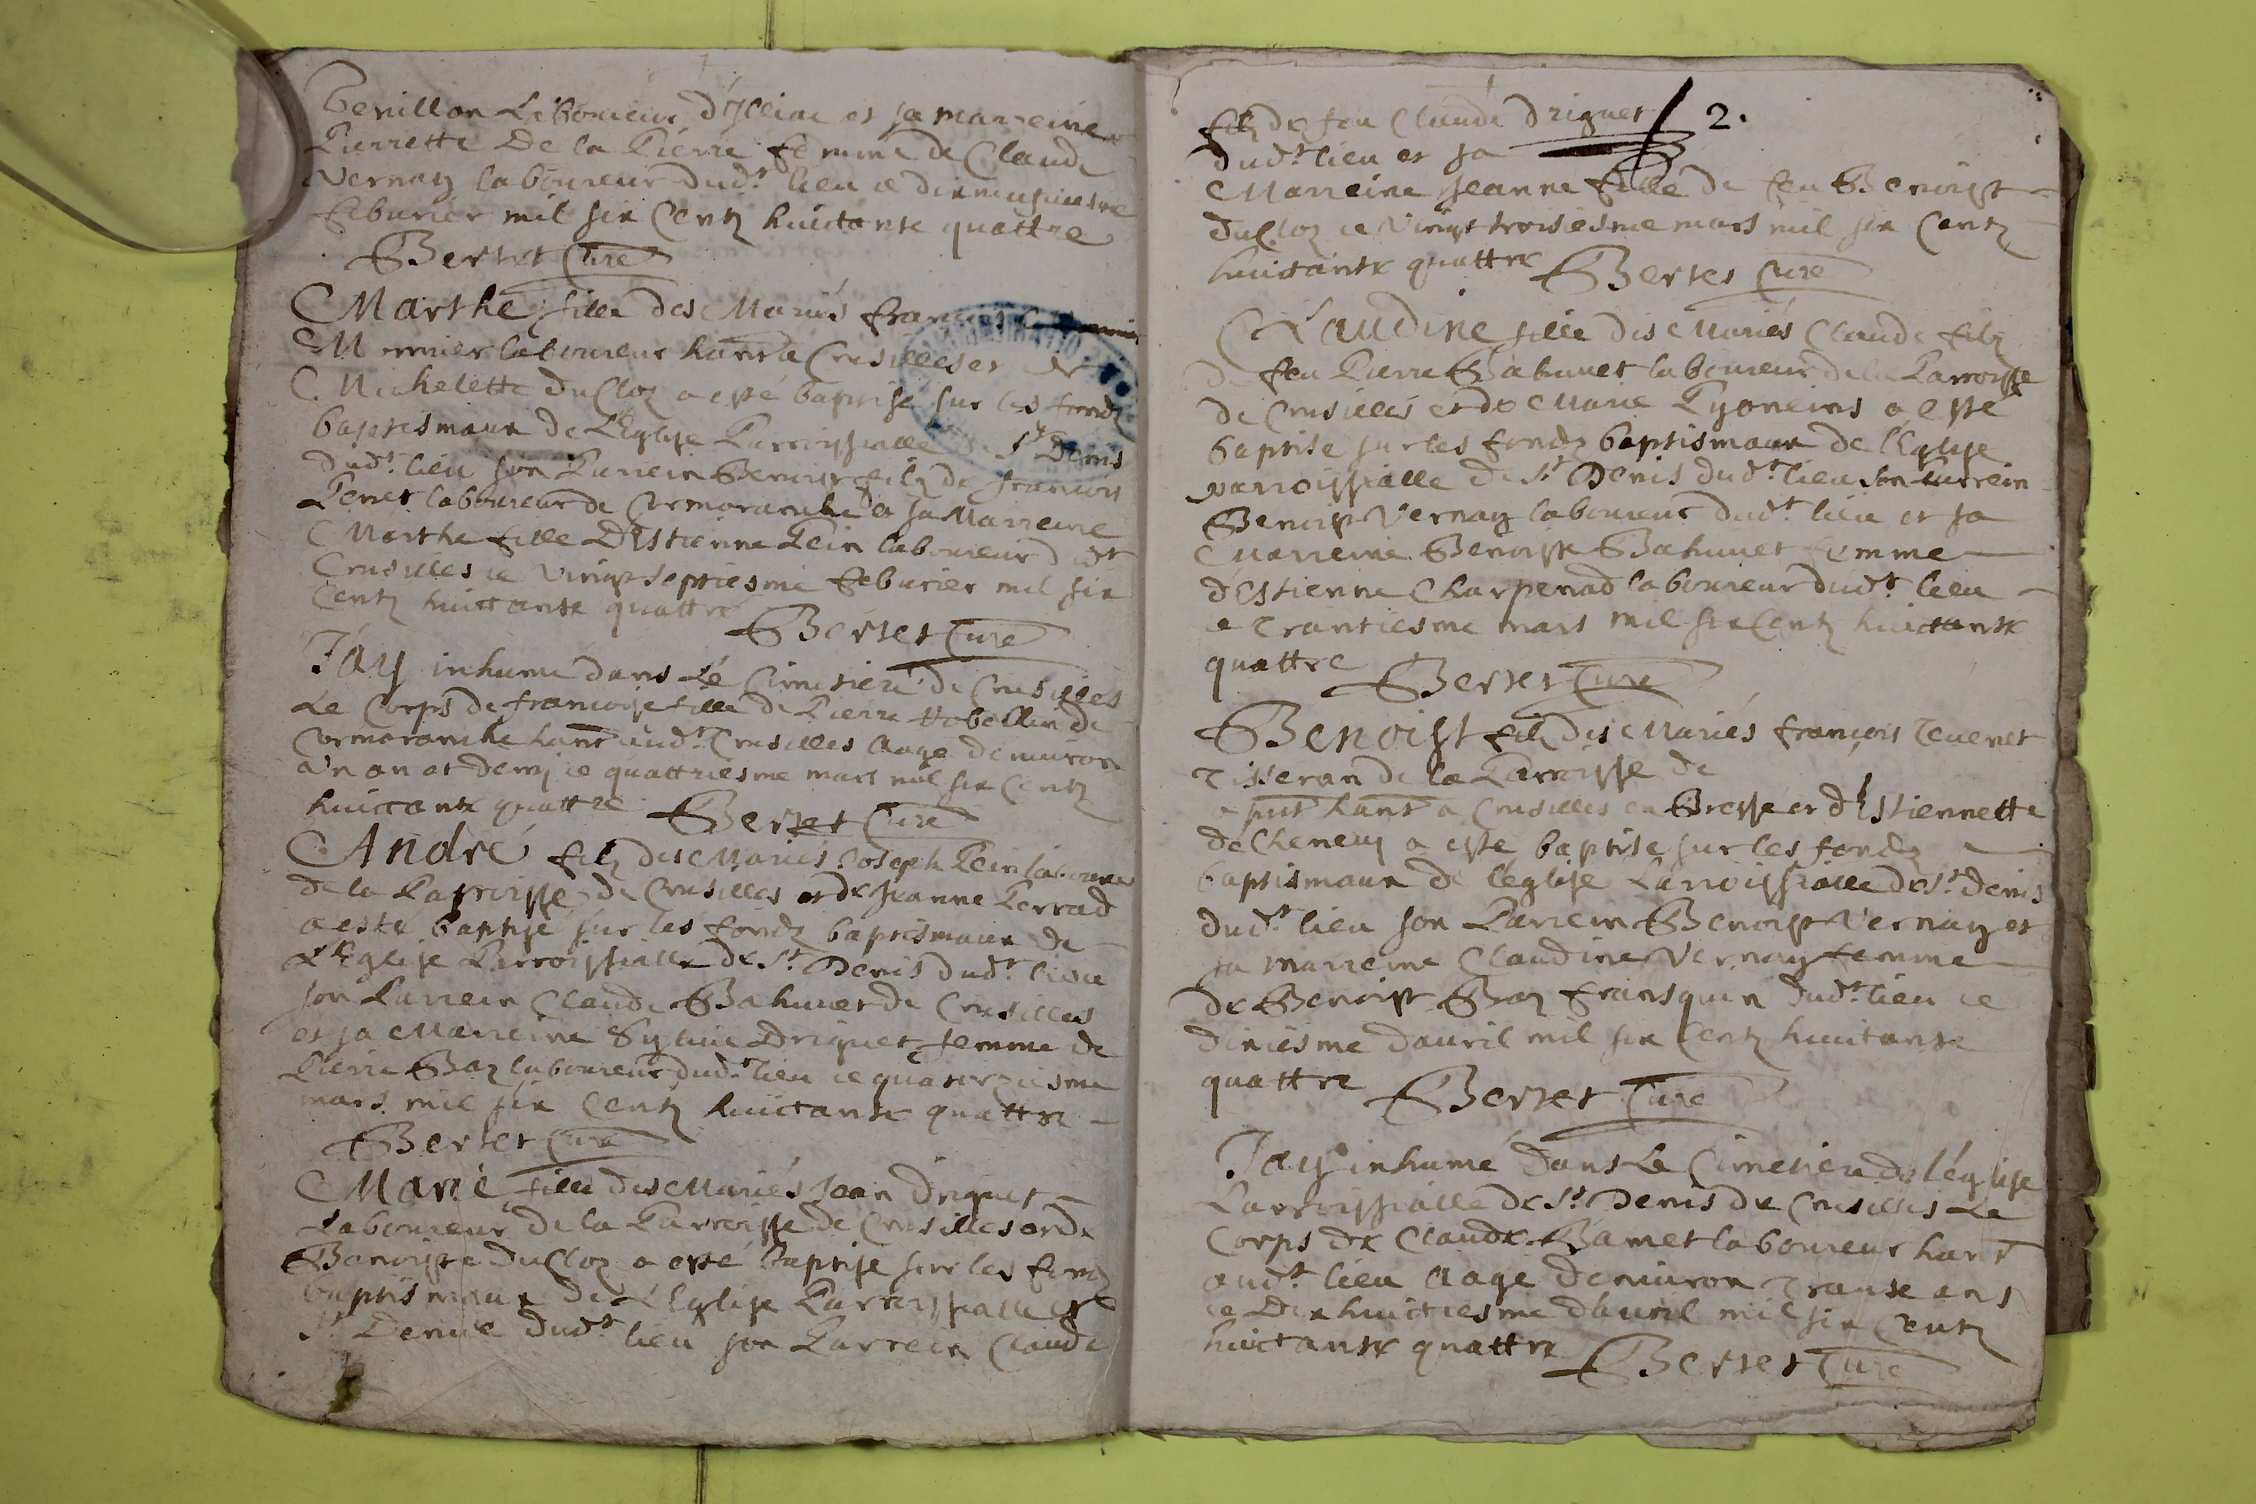 Genillon Laboureur d'Illiac et sa marreine
Pierrette De la Pierre femme de Claude
Vernay laboureur dudt lieu ce dixneufiesme
feburier mil six Centz huictante quattre
Bertet Curé
Marthe fille des Mariés françois
Monnier laboureur hantt a Crusilles et de
Michelette du Cloz a esté baptisé sur les fondz
baptismaux de L'Eglise Parroissialle St Denis
dudt lieu son Parrein Benoist filz de françois
Penet laboureur de Cormoranche et sa Marreine
Marthe fille D'Estienne Pein laboureur dudt
Crusilles ce vingt septiesme feburier mil six
Centz huictante quattre
Bertet Curé
J'ay inhumé dans Le Cimetiere de Crusilles
Le Corps de françoise fille de Pierre Hobellin de
Cormoranche hantt audt Crusilles aage denuiron
un an et demj ce quattriesme mars mil six Centz
huictante quattre Bertet Curé
André filz des Mariés Joseph Pein laboureur
de la Parroisse de Crusilles et de Jeanne Perrad
a esté baptisé sur les fondz baptismaux de
L'Eglise Parroissialle de St Denis dudt lieu
son Parrein Claude Bahuuet de Crusilles
et sa Marreine Syluie Driguet femme de
Pierre Baz laboureur dudt lieu ce quatorziesme
mars mil six Centz huictante quattre
Bertet Curé
Marie fille des Mariés Jean Driguet
Laboureur de la Parroisse de Crusilles et de
Benoiste du Cloz a esté baptisé sur les fondz
baptismaux de L'Eglise Parroissialle de
St Denis dudt lieu son Parrein Claude
2.
filz de feu Claude Driguet
dudt lieu et sa
Marreine Jeanne fille de feu Benoist
du Cloz ce vingt troisiesme mars mil six Centz
huictante quattre Bertet Curé
Claudine fille des Mariés Claude filz
de feu Pierre Bahuuet laboureur de la Parroisse
de Crusilles et de Marie Lyonneins a esté
baptisé sur les fondz baptismaux de l'Eglise
parroissialle de St Denis dudt lieu son Parrein
Benoist Vernay laboureur dudt lieu et sa
Marreine Benoiste Bahuuet femme
d'Estienne Charpenad laboureur dudt lieu
ce trantiesme mars mil six Centz huictante
quattre Bertet Curé
Benoist filz des Mariés françois Teuenet
tisseran de la Parroisse de
a pnt hantt a Crusilles en Bresse et d'Estiennette
de Cheneuj a esté baptisé sur les fondz
baptismaux de l'eglise Parroissialle de St Denis
dudt lieu son Parrein Benoist Vernay et
sa marreine Claudine Vernay femme
de Benoist Baz fransquin dudt lieu ce
dixiesme d'auril mil six Centz huictante
quattre Bertet Curé
J'ay inhumé dans Le Cimetiere de l'église
Parroissialle de St Denis de Crusilles Le
Corps de Claude Bamet laboureur hantt
audt lieu aage denuiron trante ans
ce Dixhuictiesme d'auril mil six Centz
huictante quattre
Bertet Curé